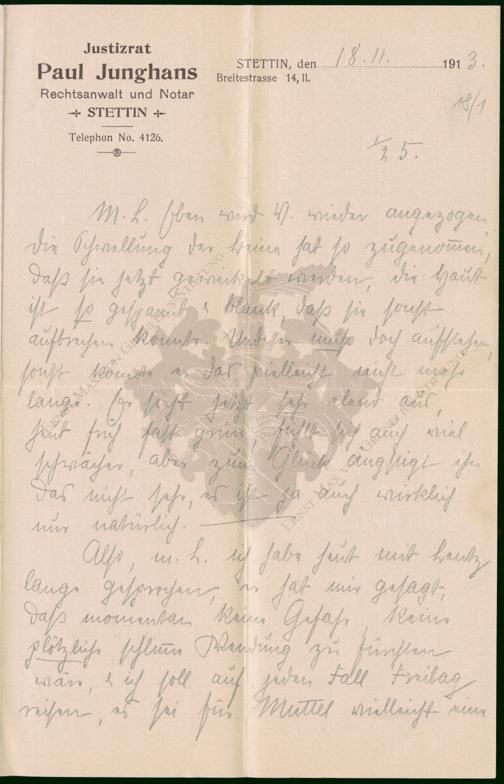 Justizrat
Paul Junghans
Rechtsanwalt und Notar
STETTIN
Telephon No. 4126.
STETTIN, den 18.11. 1913.
Breitestrasse 14, II.
18/1
25.
M. L. Eben wird V. wieder angezogen,
die Schwellung der Beine hat so zugenommen,
daß sie jetzt gewickelt werden, die Haut
ist so gespannt & blank, daß sie sonst
aufbrechen könnte. Und er muß doch aufstehen,
sonst könnte er das vielleicht nicht mehr
lange. Er sieht jetzt sehr elend aus,
heut früh fast grün, fühlt sich auch viel
schwächer, aber zum Glück ängstigt ihn
das nicht sehr, es ist ja auch wirklich
nur natürlich.
Also, m. L. ich habe heut mit Lentz
lange gesprochen, er hat mir gesagt,
daß momentan keine Gefahr keine
plötzliche schlimme Wendung zu fürchten
wäre, & ich soll auf jeden Fall Freitag
reisen, es sei für Muttel vielleicht eine